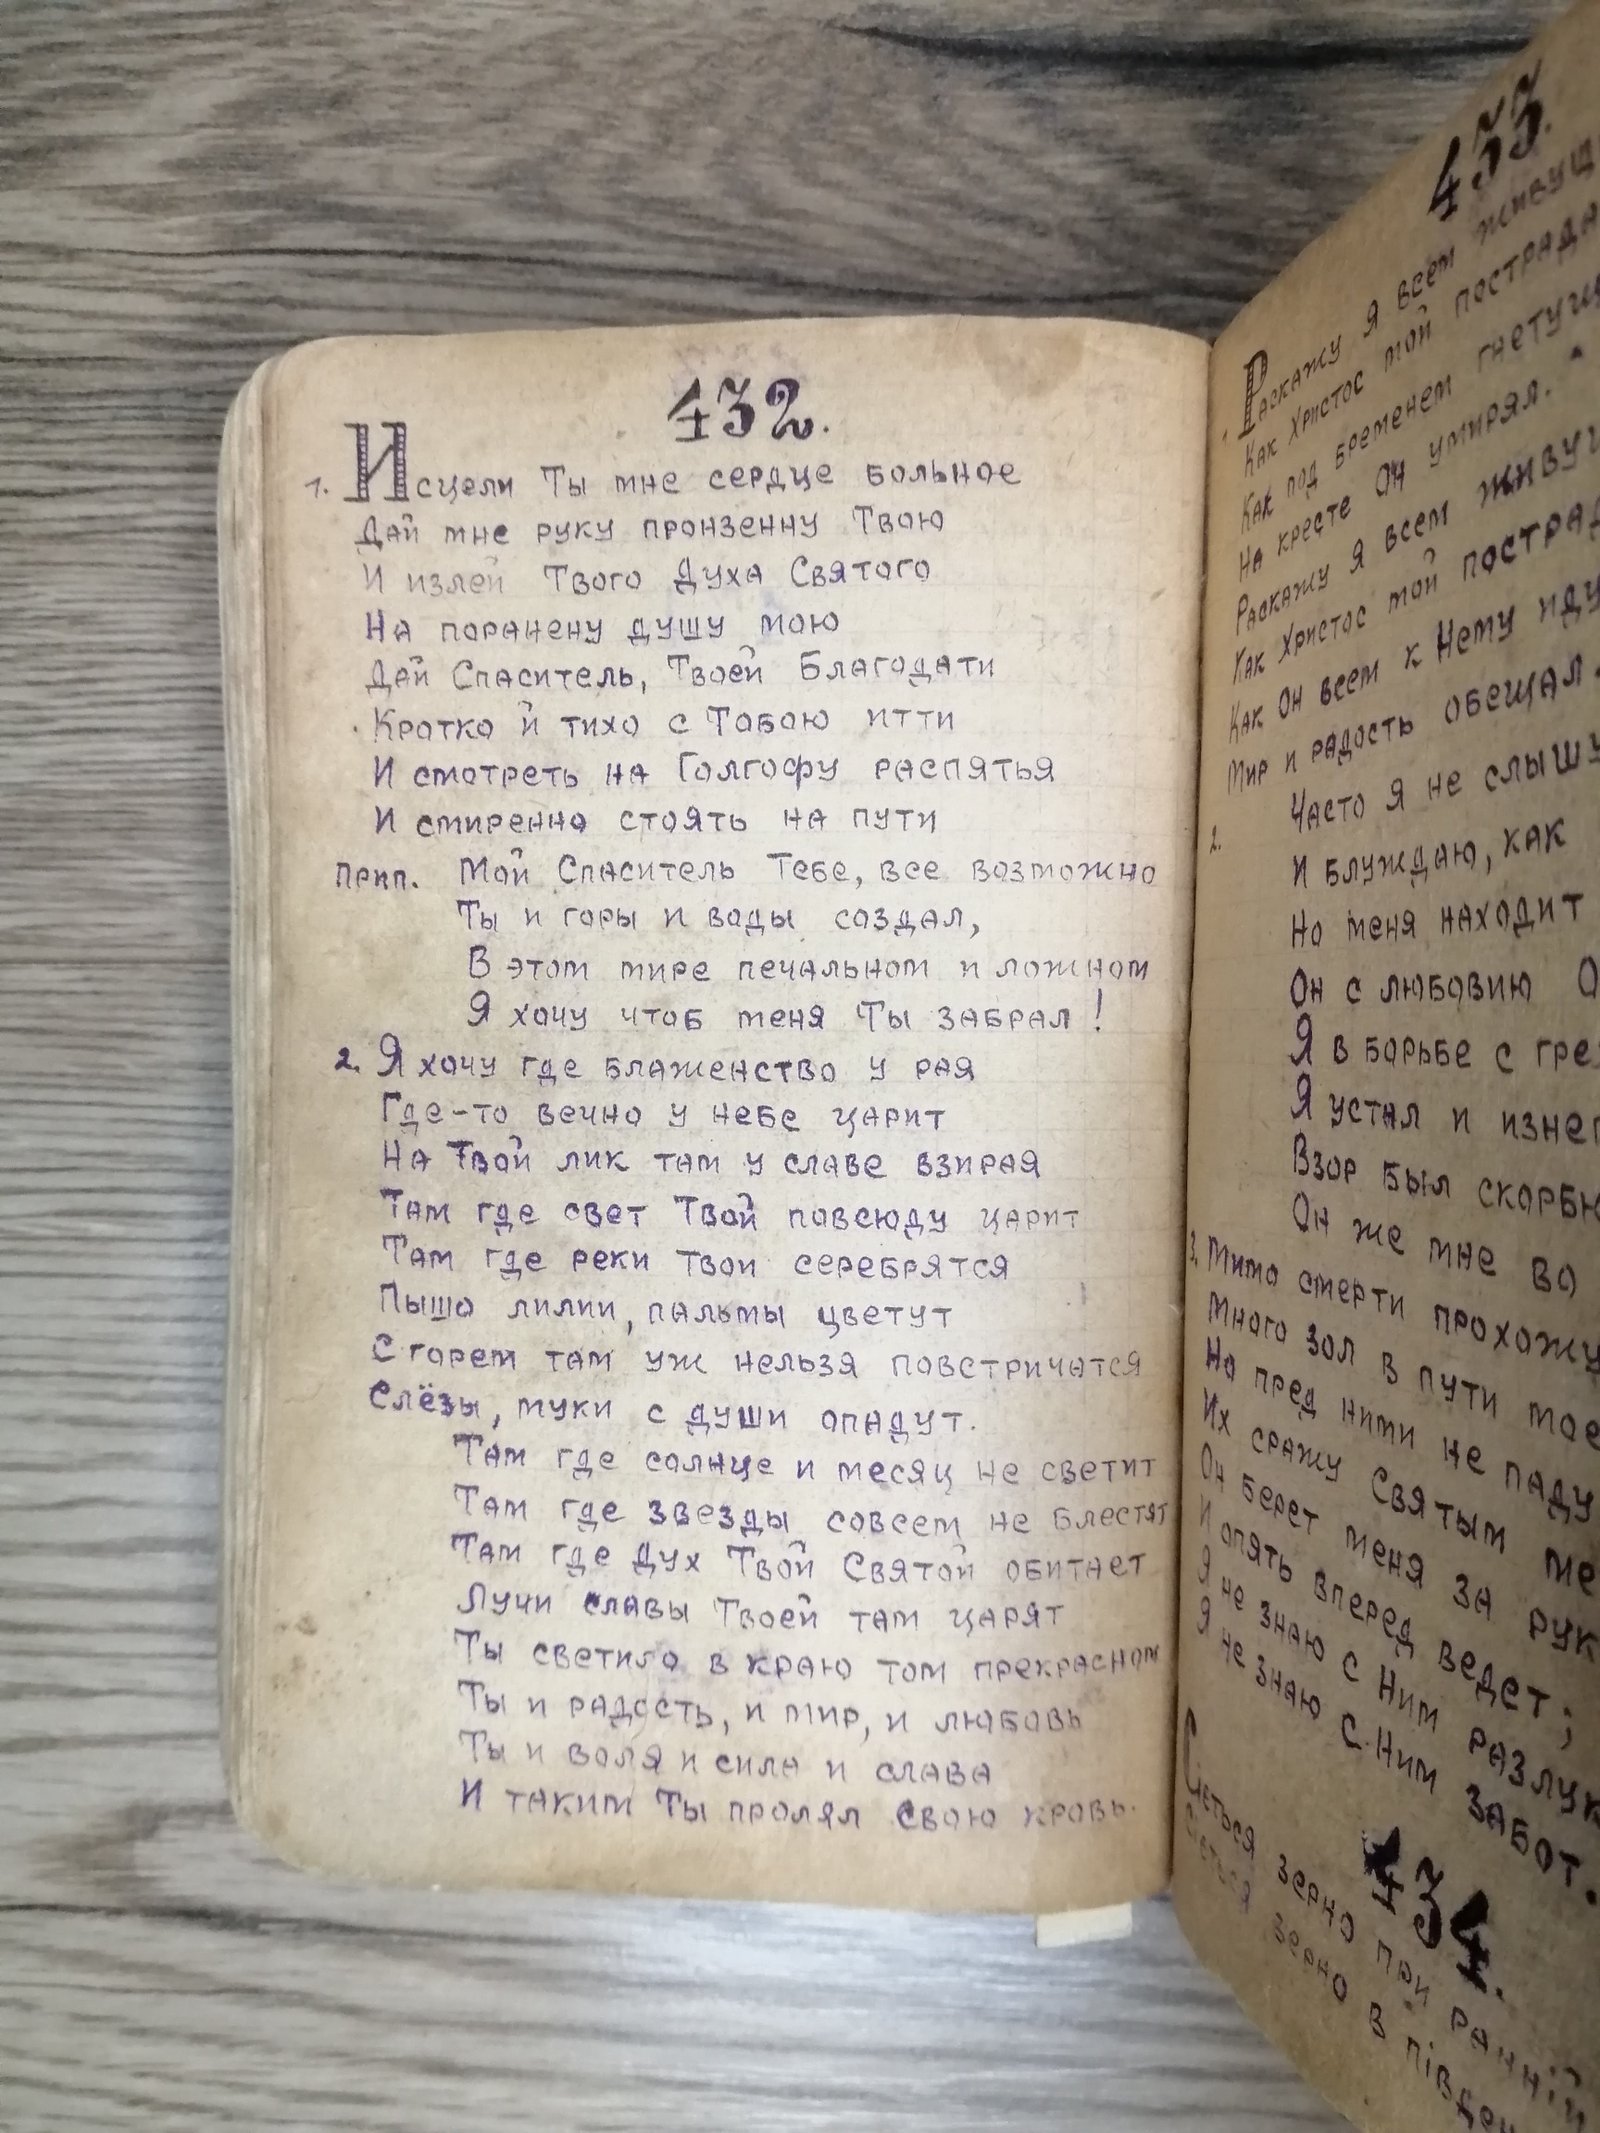 432.
1. Исцели Ты мне сердце больное
Дай мне руку пронзенну Твою
И излей Твого Духа Святого
На поранену душу мою
Дай Спаситель, Твоей Благодати
Кротко й тихо с Тобою итти
И смотреть на Голгофу распятья
И смиренно стоять на пути
Прип. Мой Спаситель Тебе, все возможно
Ты и горы и воды создал,
В этом мире печальном и ложном
Я хочу чтоб меня Ты забрал!
2. Я хочу где блаженство у рая
Где-то вечно у небе царит
На Твой лик там у славе взирая
Там где свет Твой повсюду царит
Там где реки твои серебрятся
Пышо лилии, пальмы цветут
С горем там уж нельзя повстричатся
Слёзы, муки с души опадут.
Там где солнце и месяц не светит
Там где звезды совсем не блестят
Там где Дух Твой Святой обитает
Лучи славы Твоей там царят
Ты светило в краю том прекрасном
Ты и радость, и мир, и любовь
Ты и воля и сила и слава
И таким Ты пролял Свою кровь.
433.
1. Раскажу я всем живущ
Как Христос мой пострада
Как под бременем гнетущ
На кресте Он умирял.
Раскажу я всем живущ
Как Христос мой пострад
Как Он всем к Нему иду
Мир и радость обещал.
2. Часто я не слышу
И блуждаю, как
Но меня находит
Он с любовию О
Я в борьбе с гре
Я устал и изне
Взор был скорбн
Он же мне во
3. Мимо смерти прохожу
Много зол в пути мое
Но пред ними не паду
Их сражу Святым ме
Он берет меня за рук
И опять вперед ведет;
Я не знаю с Ним разлук
Я не знаю С Ним забот.
434.
Сеється зерно при ранній
Сеється зерно в півден